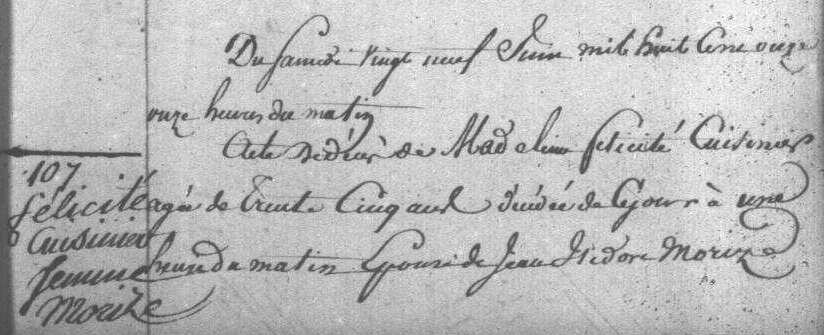 Du Samedi vingt neuf Juin mil huit cent onze
onze heures du matin
Acte de décès de Madeleine félicité Cuisinier
107
félicité
Cuisinier
femme
Morize
agée de trente Cinq ans décédée de Ce jour à une
heure du matin Epouse de Jean Isidore Morize